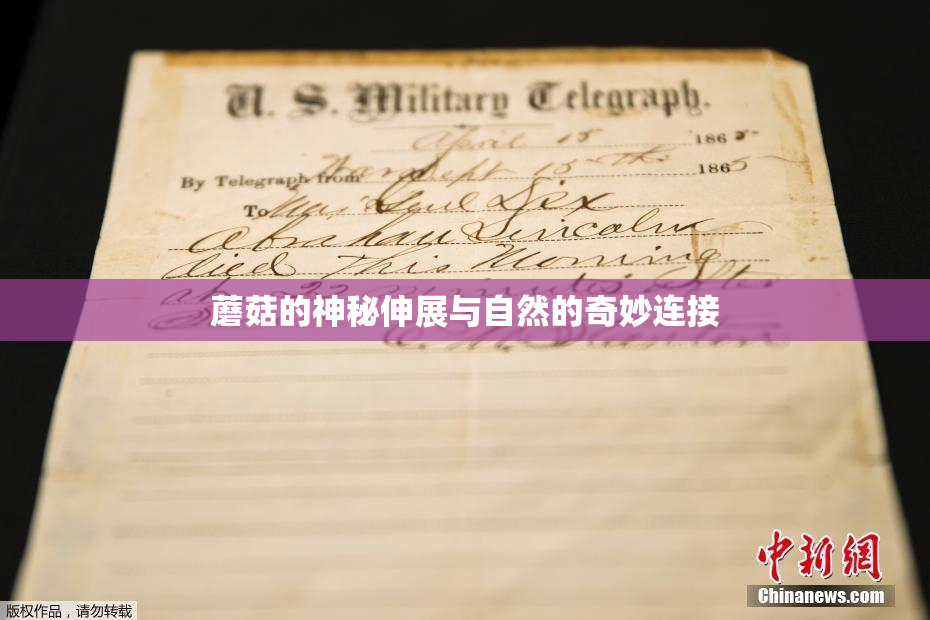 U. S. Military Telegraph.
April 15 1865
By Telegraph from War Dept 15th 1865
To Maj Genl Dix
Abraham Lincoln
died this Morning
at 22 minutes after
蘑菇的神秘伸展与自然的奇妙连接
E. M. Stanton
中新网
Chinanews.com
版权作品，请勿转载